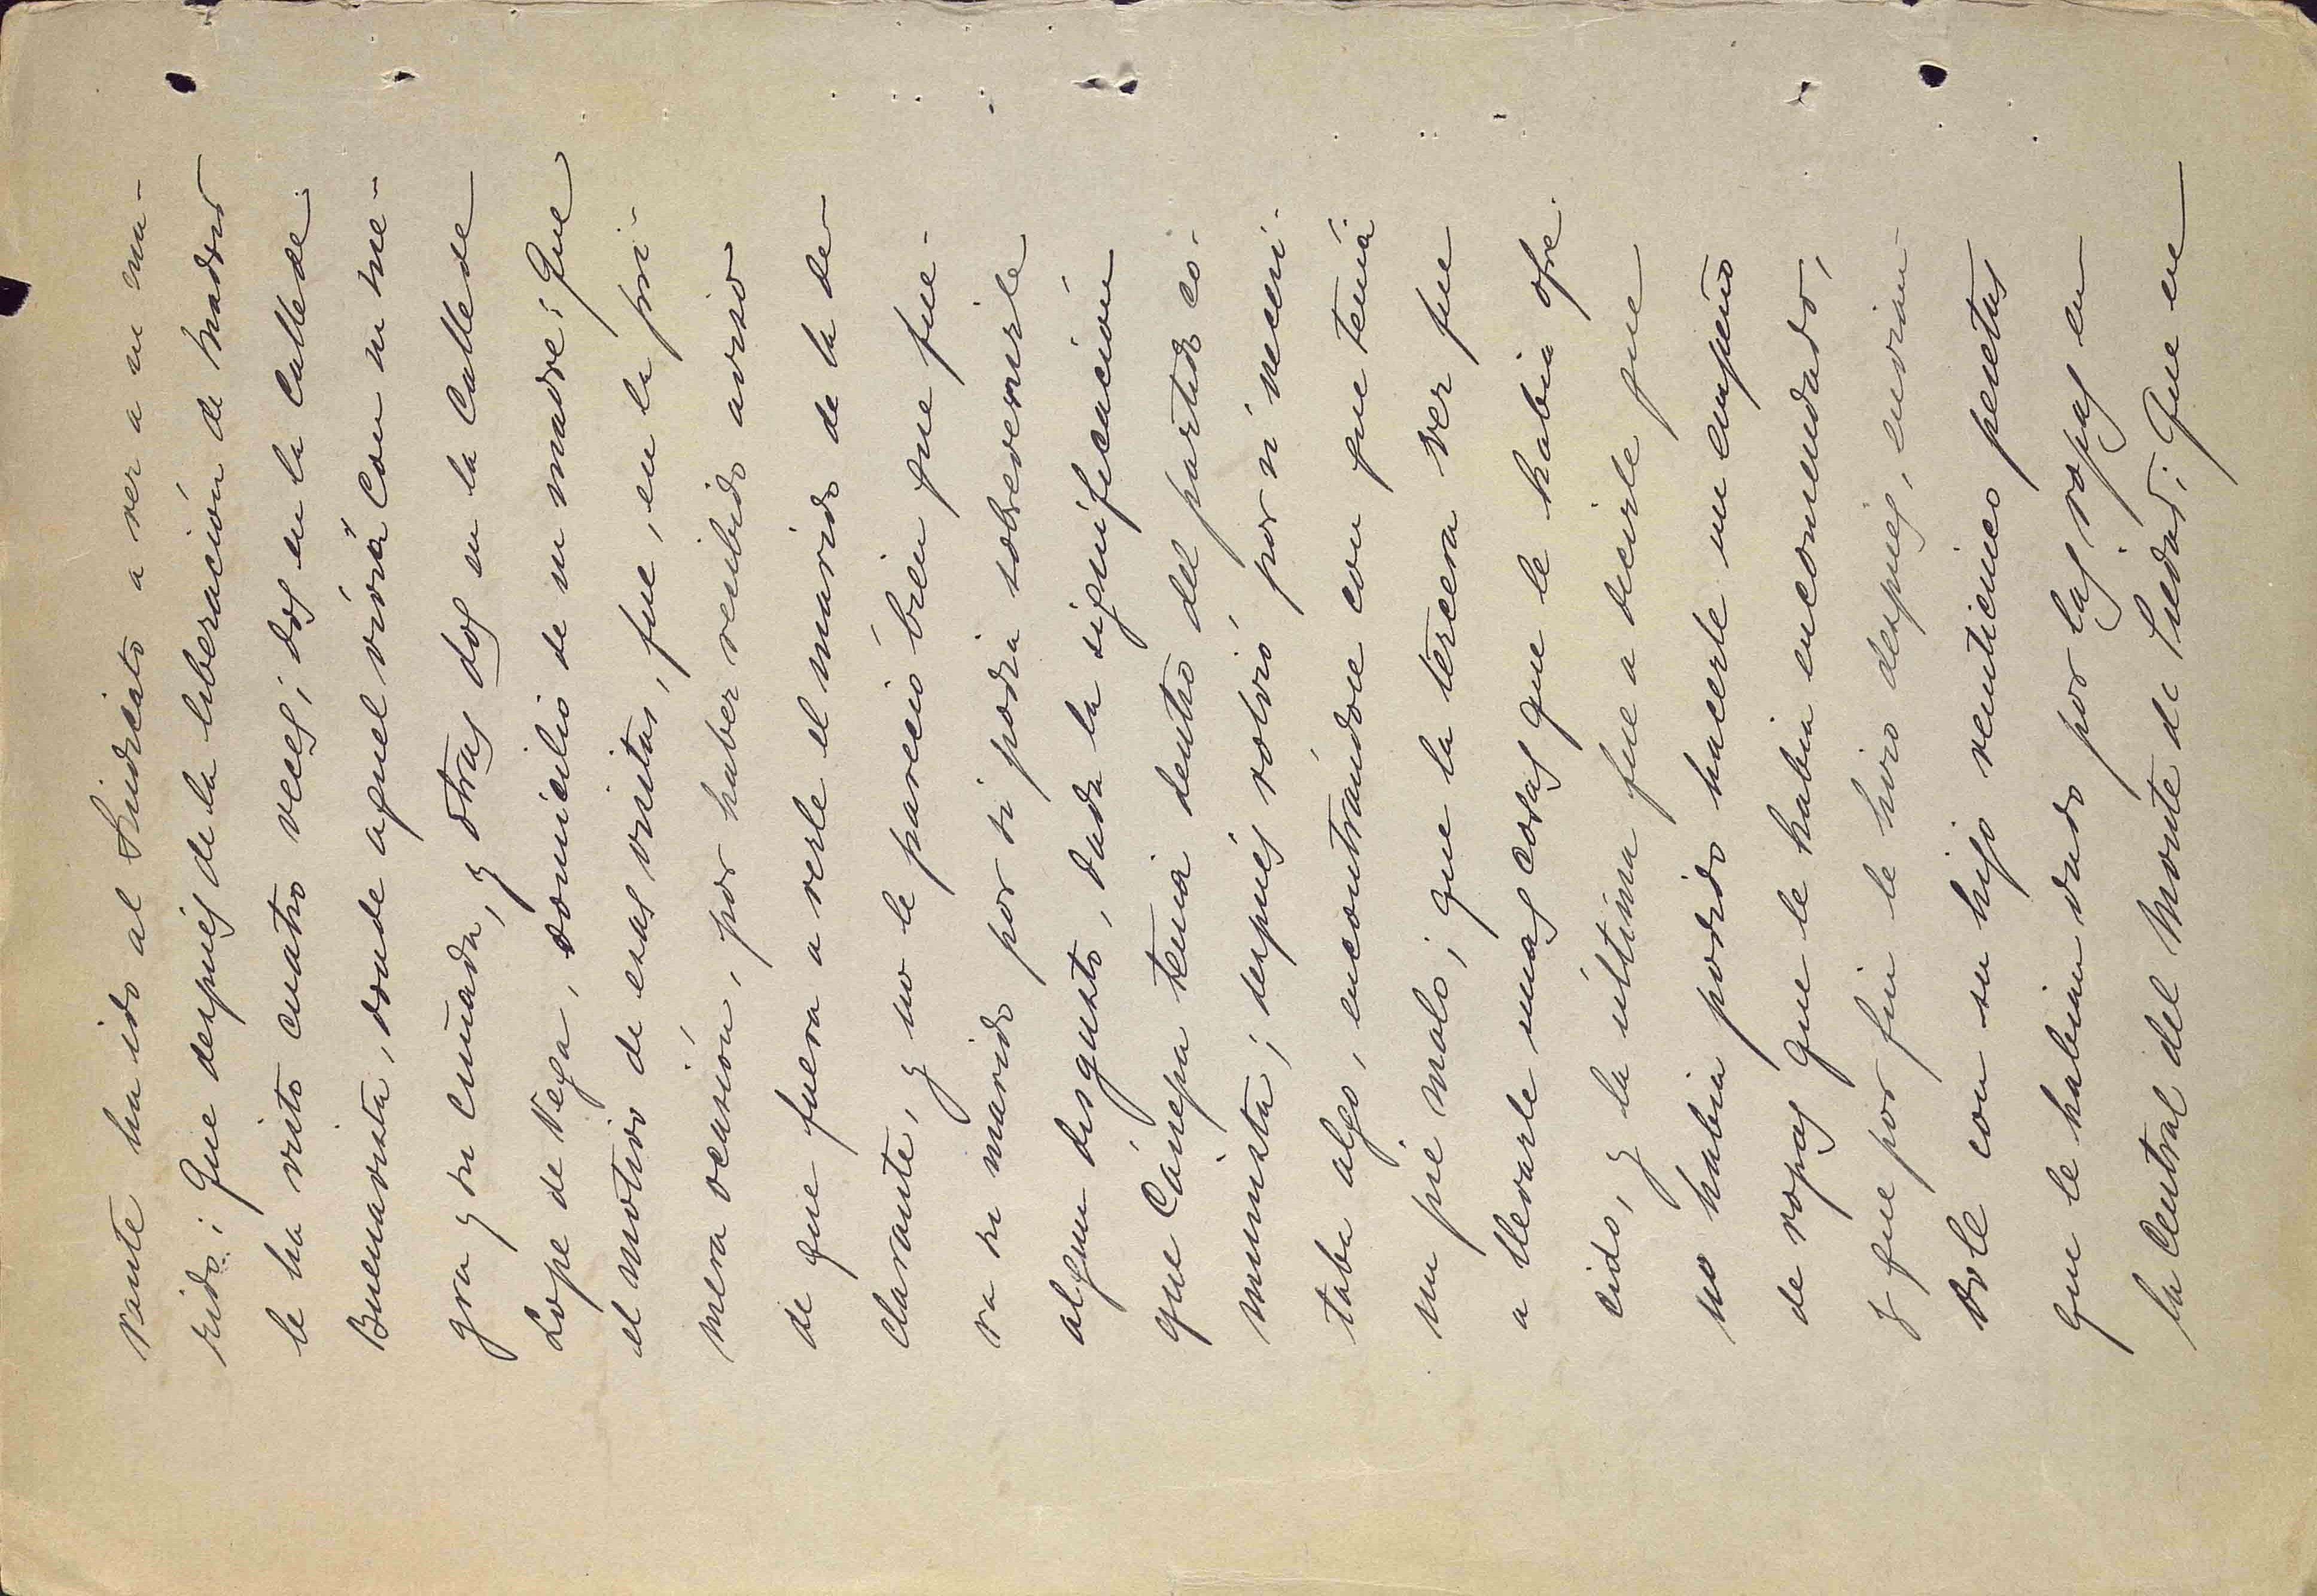 rante ha ido al Sindicato a ver a su ma-
rido; Que después de la liberación de Madrid
le ha visto cuatro veces; dos en la Calle de
Buenavista, donde aquel vivía con su sue-
gra y su cuñada, y otras dos en la Calle de
Lope de Vega, domicilio de su madre; Que
el motivo de esas visitas, fue, en la pri-
mera ocasión, por haber recibido aviso
de que fuera a verle el marido de la de-
clarante, y no le pareció bien que fue-
ra su marido por si podia sobrevenirle
algun disgusto, dada la significación
que Cánepa tenia dentro del partido co-
munista; después volvió por si necesi-
taba algo, encontrándose con que tenía
un pié malo; que la tercera vez fue
a llevarle unas cosas que le habia ofre-
cido, y la última fue a decirle que
no habia podido hacerle un empeño
de ropas que le habia encomendado,
y que por fin le hizo después, envian-
dole con su hijo venticinco pesetas
que le habian dado por las ropas en
la Central del Monte de Piedad; Que en